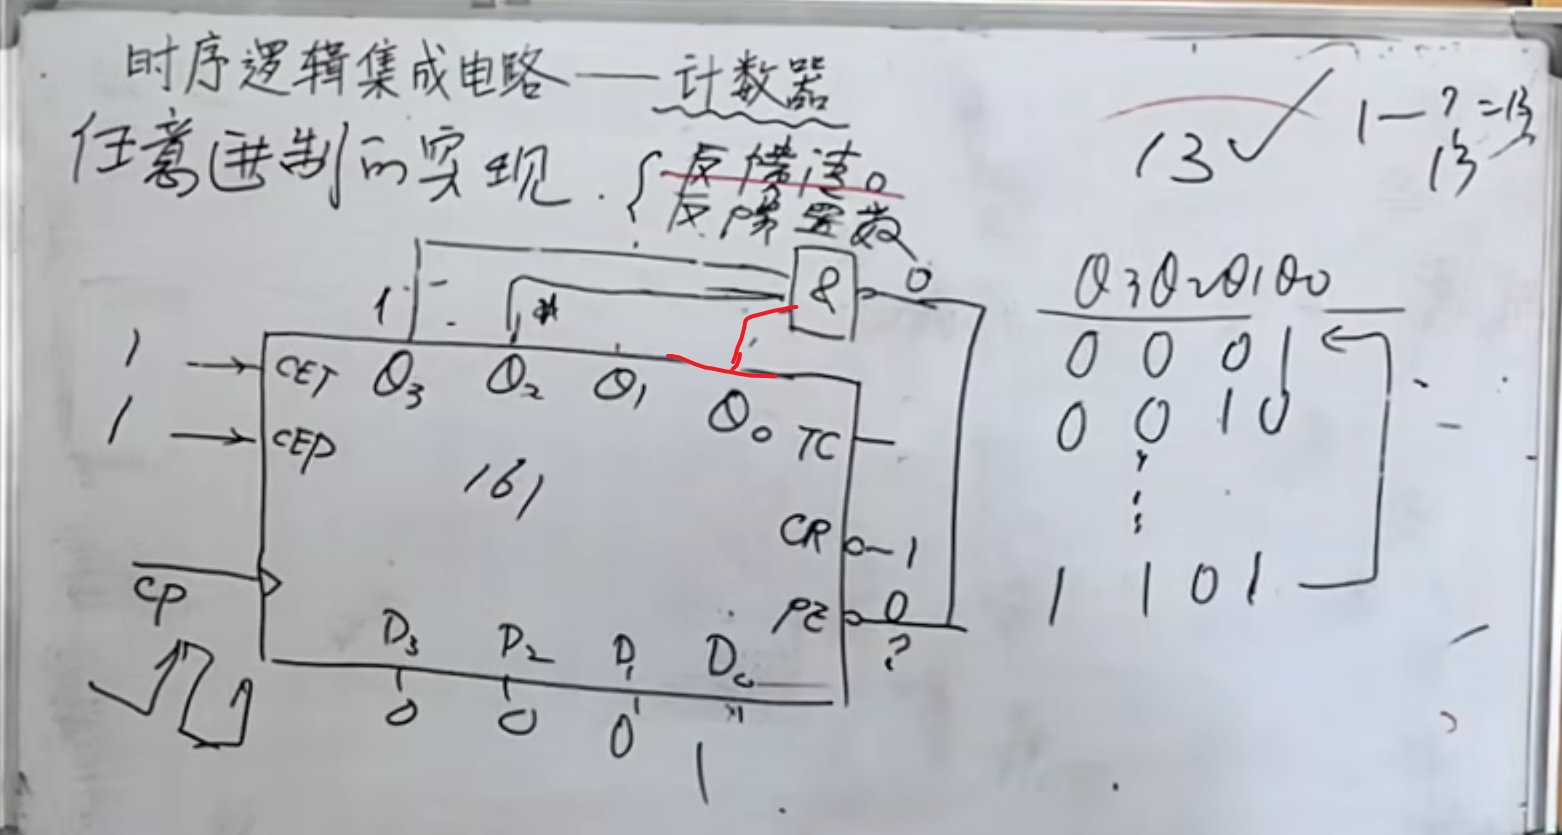 时序逻辑集成电路——计数器
任意进制的实现. { 反馈清0
反馈置数
13 ✓
1—?=13
13
& 0
1
1 CET Q3 Q2 Q1 Q0
1 CEP TC
161
CR 1
CP PE 0
?
D3 D2 D1 D0
0 0 0 1
Q3Q2Q1Q0
0 0 0 1
0 0 1 0
⋮
1 1 0 1